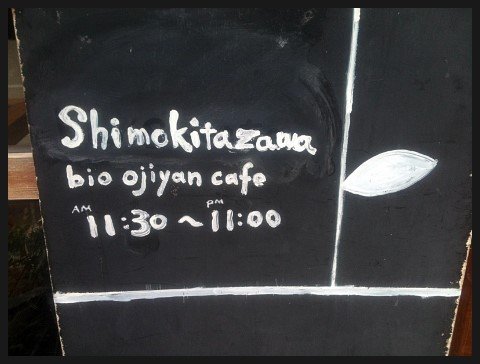 Shimokitazawa
bio ojiyan cafe
AM 11:30 ~ PM 11:00